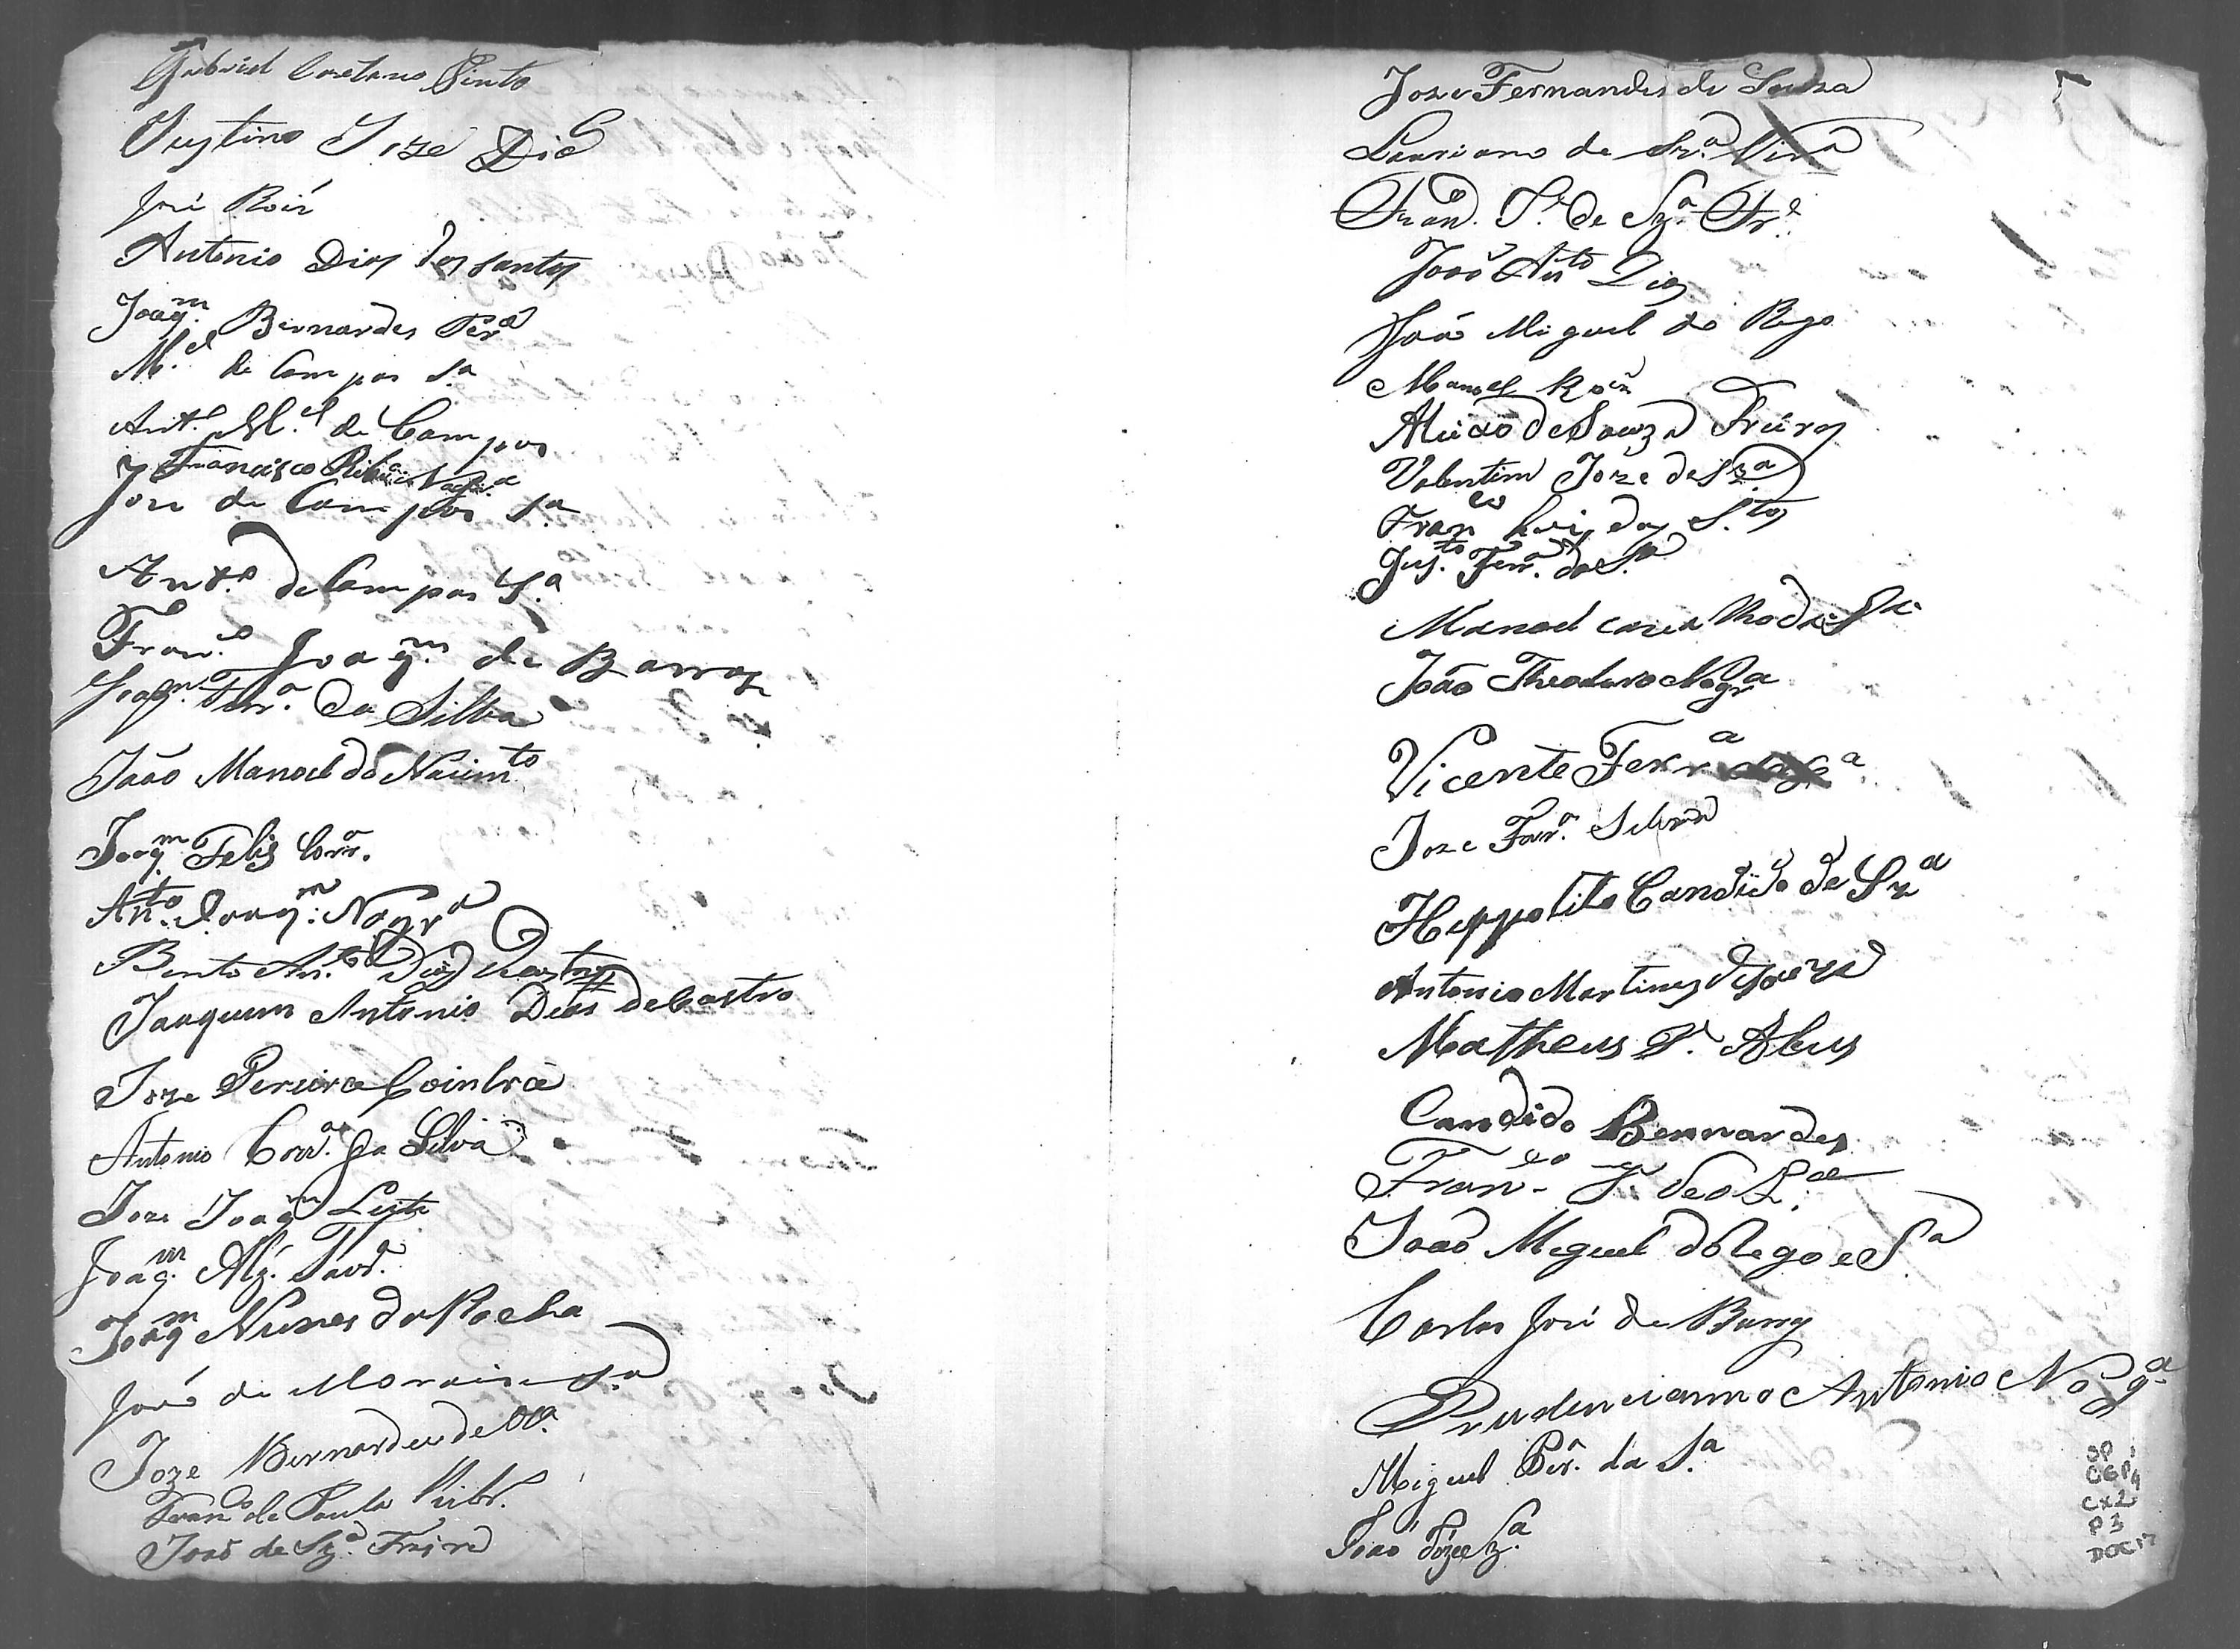 Gabriel Caetano Pinto
Justino Joze Dias
José Roiz
Antonio Dias dos Santos
Joaqm. Bernardes Pera
Mel. de Campos Sa
Anto. Mel. de Campos
Francisco Ribeiro Noga
Joze de Campos Sa
Anto. de Campos Sa
Franco. Joaqm. de Barros
Joaqm. Ferra. da Silva
João Manoel do Nascimto
Joaqm. Felis Corra.
Anto. Joaqm. Nogra
Bento Anto. Dias
Joaquim Antonio Dias de Castro
Joze Pereira Coimbra
Antonio Corra. da Silva
Joze Joaqm Leite
Joaqm. Alz.
Joaqm Nunes da Rocha
João de Moraes e Sa
Joze Bernardes de
Franco de Paula Ribro.
João de Sza. Freire
Joze Fernandes de Souza
Lauriano de Sza.
Franco. de Sza.
João Anto Dias
João Miguel do Rego
Manoel Roiz
Aleixo de Souza Freires
Valentim Joze de Sza
Franco Luis dos Stos
Justo. Ferra. da Sa
Manoel
João Theodoro Nogra
Vicente Ferra
Joze Ferra. Silva
Heppolito Candido de Sza
Antonio Martines de Souza
Matheus P. Alves
Candido Bernardes
Franco. J. de
João Miguel do Rego e Sa
Carlos José de Barros
Prudencianno Antonio Noga
Miguel Per. da Sa
João Joze Sza.
SP
CGP4
CX2
P3
DOC17